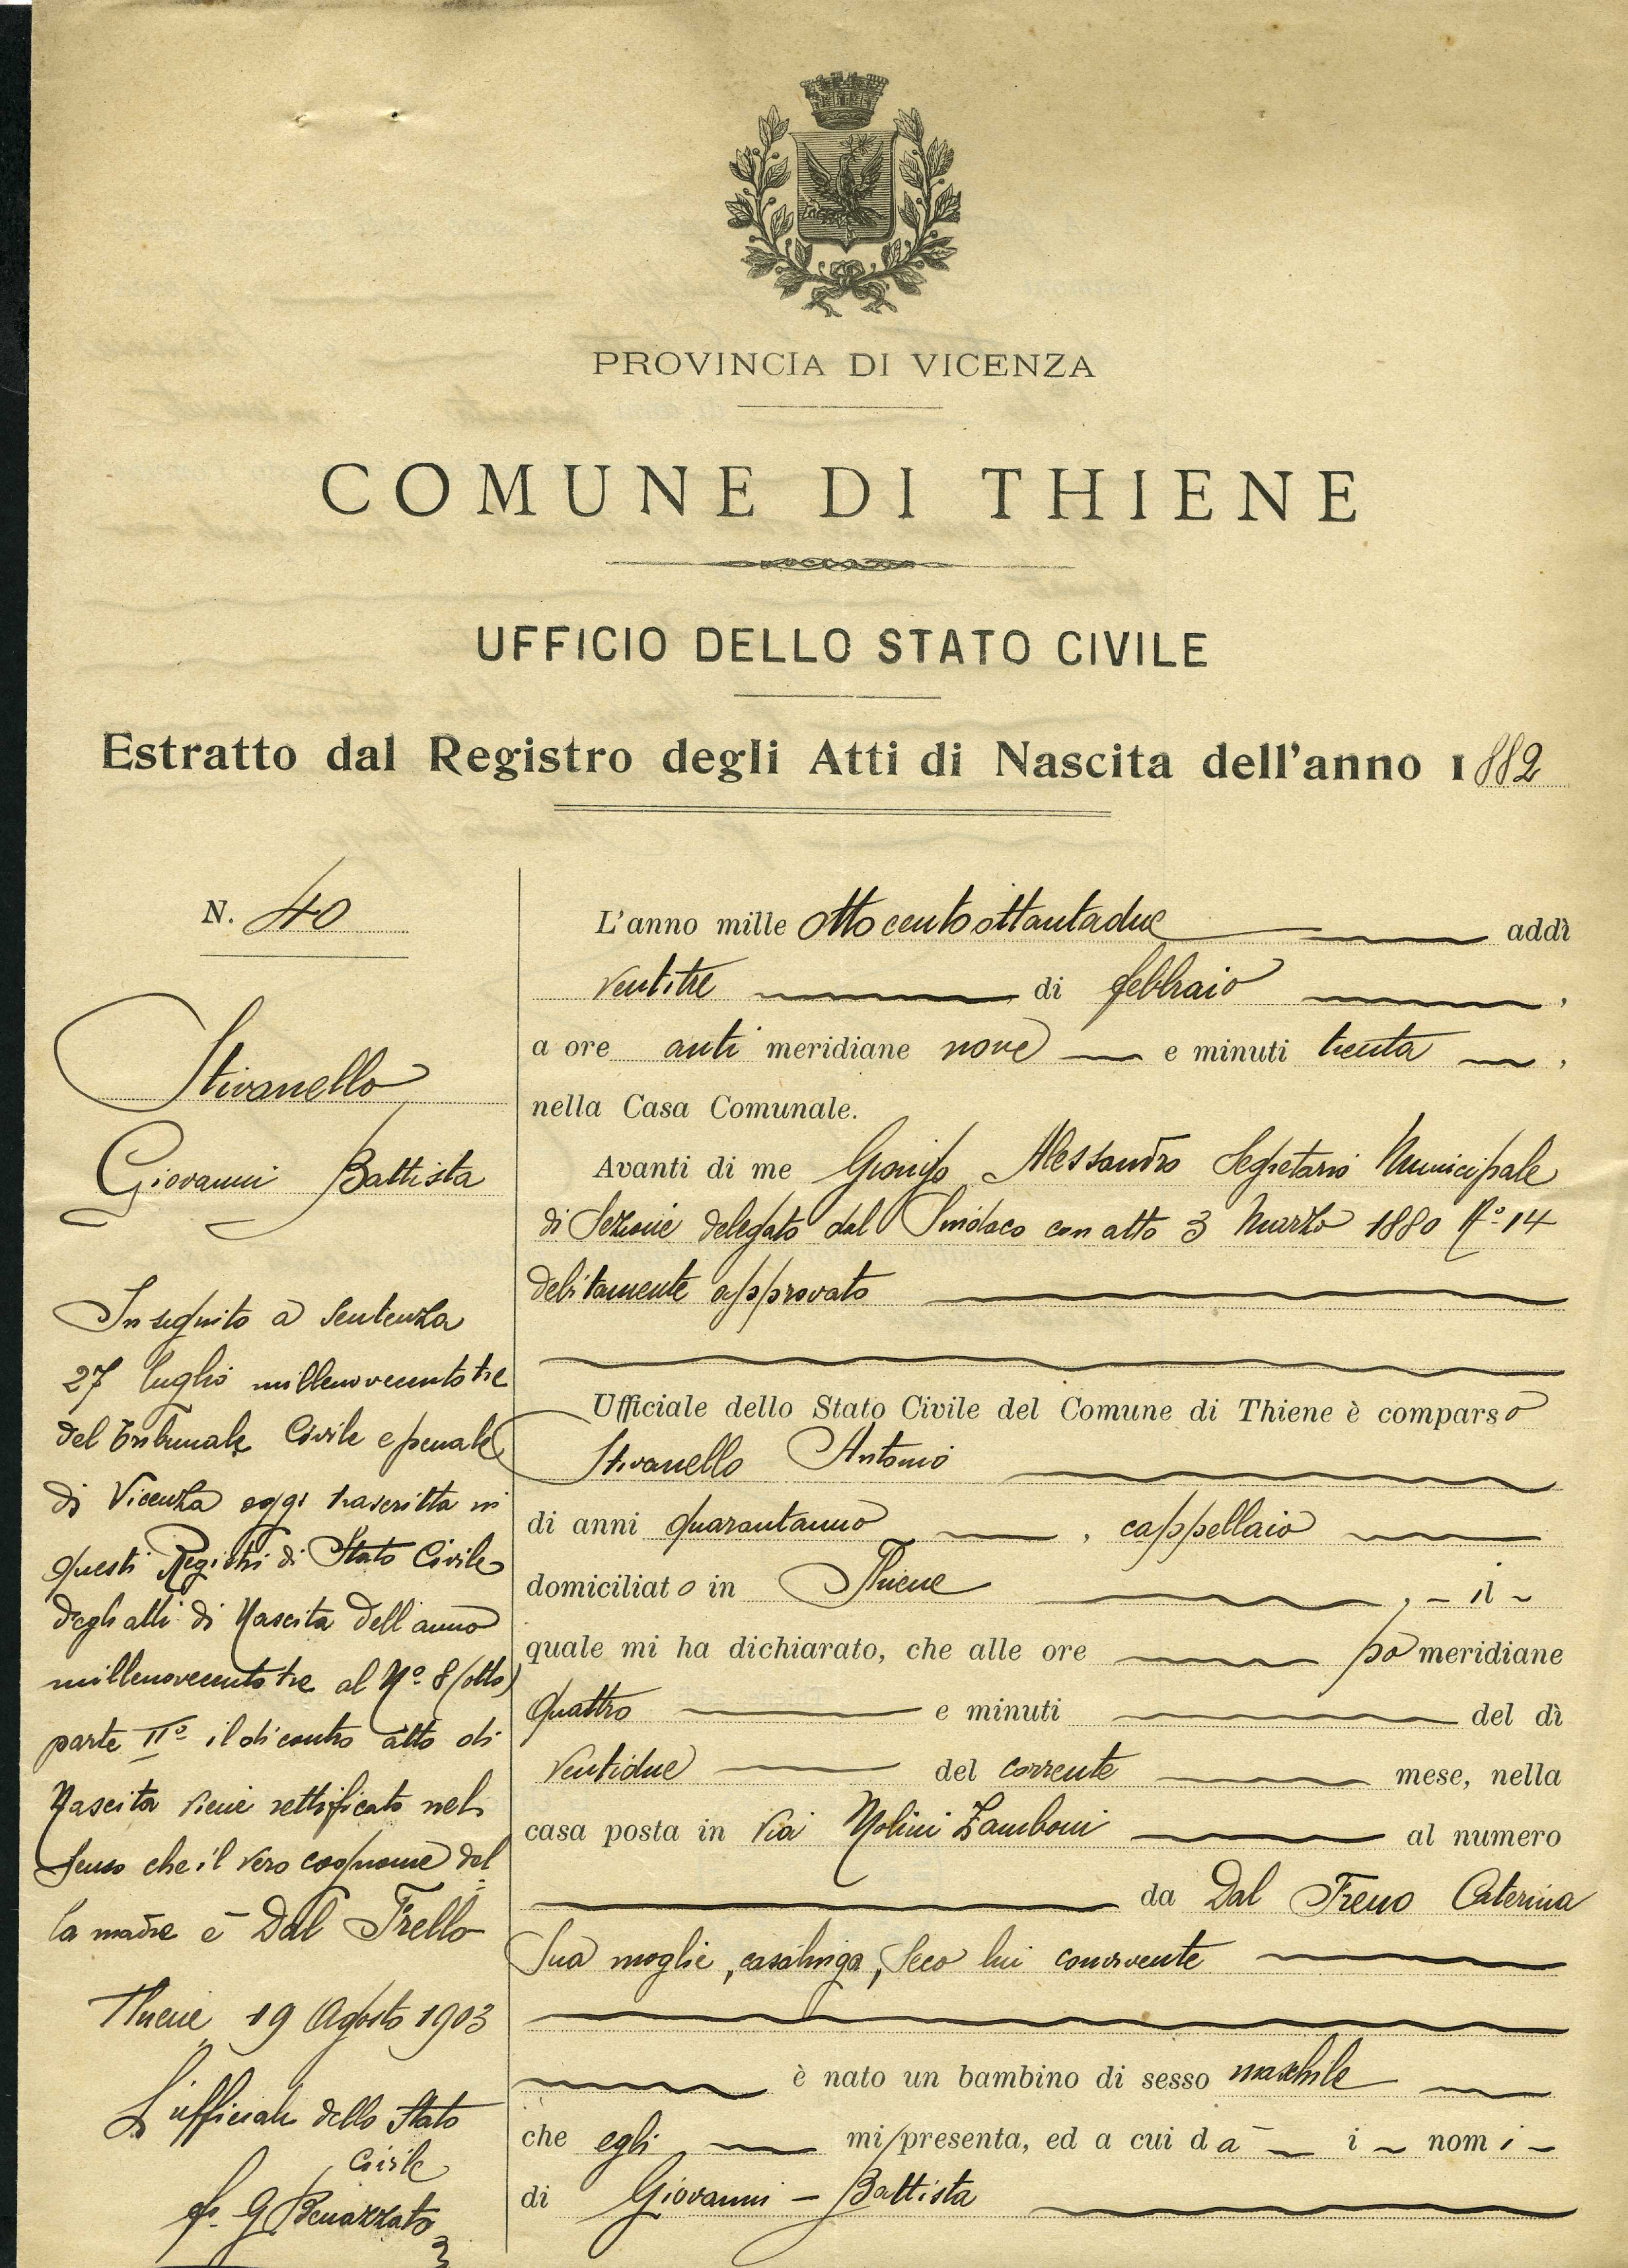 PROVINCIA DI VICENZA
COMUNE DI THIENE
UFFICIO DELLO STATO CIVILE
Estratto dal Registro degli Atti di Nascita dell'anno 1882
N. 40
Stivanello
Giovanni Battista
In seguito a Sentenza
27 luglio millenovecentotre
del Tribunale Civile e penale
di Vicenza oggi trascritta in
questi Registri di Stato Civile
degli atti di Nascita dell'anno
millenovecentotre al Nº 8 (otto)
parte IIª il di contro atto di
Nascita viene rettificato nel
senso che il vero cognome del=
la madre è Dal Trello
Thiene 19 Agosto 1903
L'ufficiale dello Stato
Civile
G Benazzato
L'anno mille ottocentoottantadue addì
ventitre di febbraio ,
a ore anti meridiane nove e minuti trenta ,
nella Casa Comunale.
Avanti di me Alessandro Segretario Municipale
di Sezione delegato dal Sindaco con atto 3 Marzo 1880 Nº 14
debitamente approvato
Ufficiale dello Stato Civile del Comune di Thiene è comparso
Stivanello Antonio
di anni quarantanno , cappellaio
domiciliato in Thiene , il
quale mi ha dichiarato, che alle ore po meridiane
quattro e minuti del dì
ventidue del corrente mese, nella
casa posta in via Molini Zamboni al numero
da Dal Freno Caterina
sua moglie, casalinga, seco lui convivente
è nato un bambino di sesso maschile
che egli mi presenta, ed a cui dà i nomi
di Giovanni - Battista